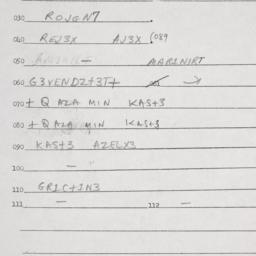 030 ROJGN7 .
040 REJ3X AJ3X (089
050 — AAR1NIRT
060 G3VENDZ+3T+ →
070 + Q AZA MIN KAS+3
080 + Q AZA MIN KAS+3
090 KAS+3 AZELX3
100 —
110 GR1C+IN3
111 — 112 —